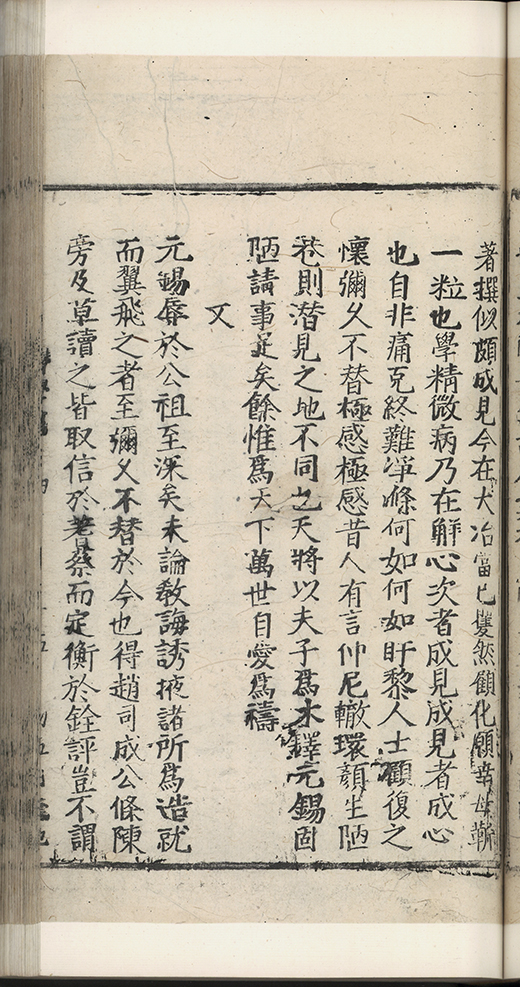 著撰似頗成見今在大冶當已矍然顧化願幸毋靳
一粒也學精微病乃在觧心次者成見成見者成心
也自非痛克終難淨滌何如何如盱黎人士顒復之
懷彌久不替極感極感昔人有言仲尼轍環顔生陋
巷則潛見之地不同也天將以夫子爲木鐸元錫固
陋請事足矣餘惟爲天下萬世自愛爲禱
又
元錫辱於公祖至深矣未論敎誨誘掖諸所爲造就
而翼飛之者至彌久不替於今也得趙司成公條陳
旁及草讀之皆取信於蓍蔡而定衡於銓評豈不謂